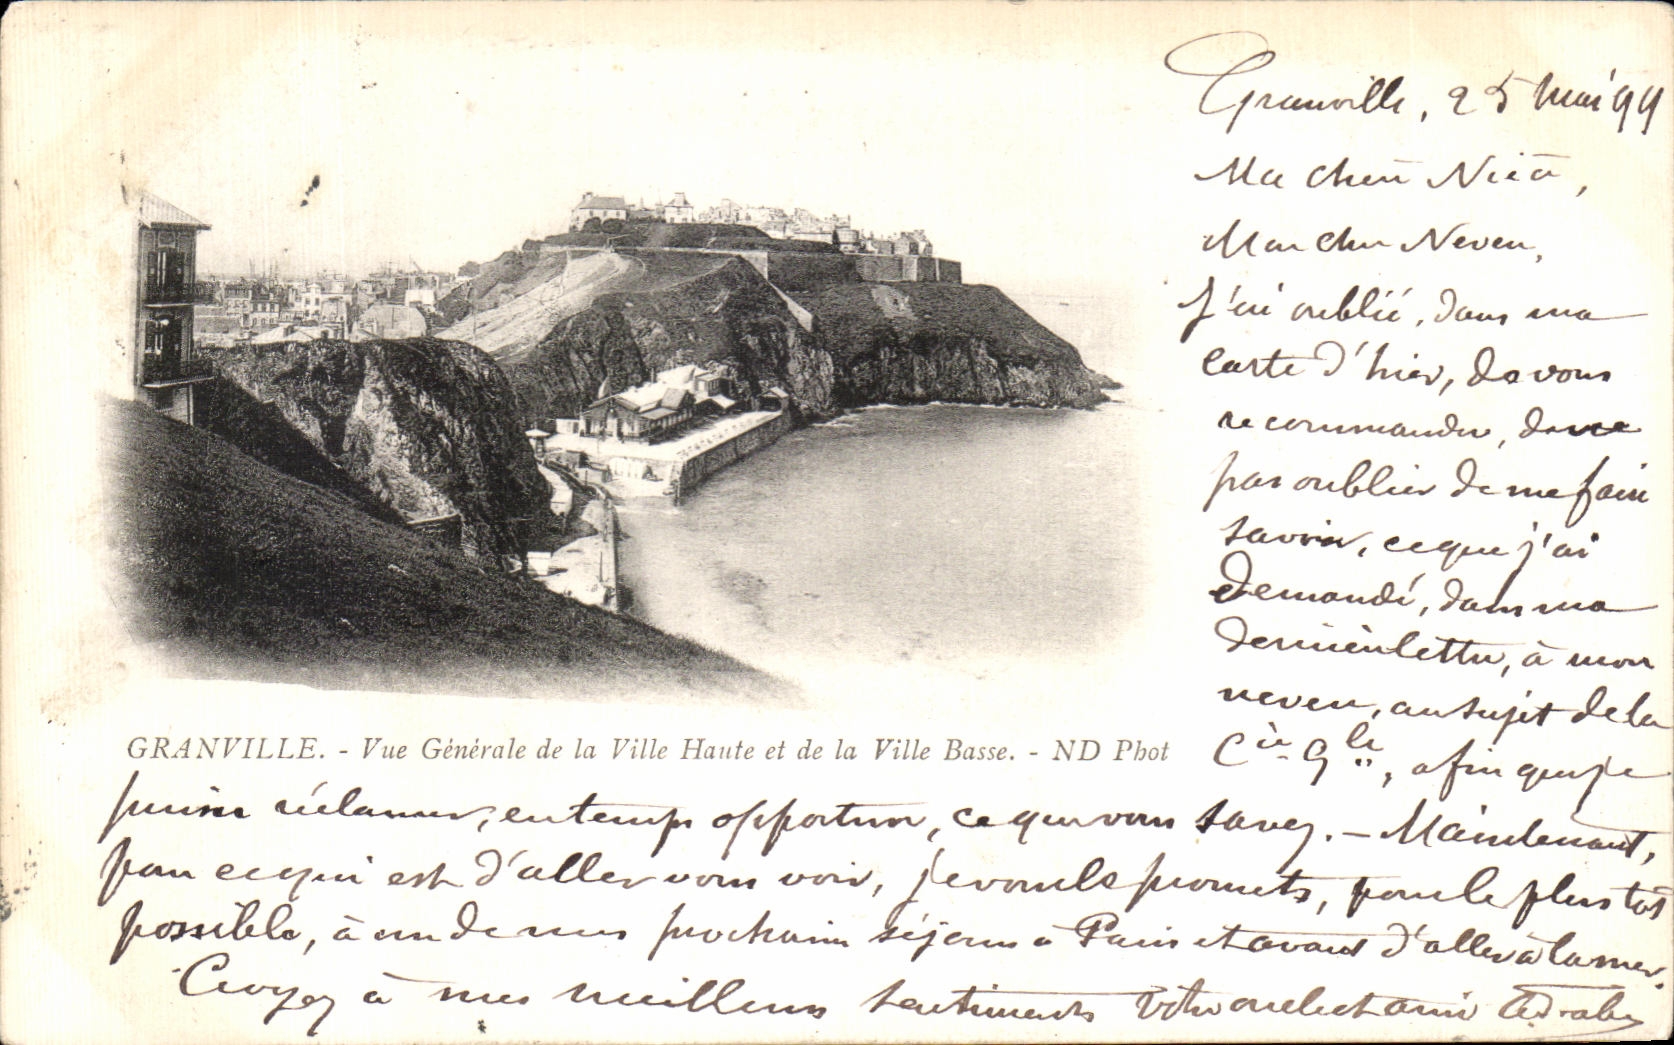 Granville, 25 Mai 99
Ma chère Nièce,
Mon cher Neveu,
J'ai oublié, dans ma
carte d'hier, de vous
recommander, de ne
pas oublier de me faire
savoir, ce que j'ai
demandé, dans ma
dernière lettre, à mon
neveu, au sujet de la
Cie Gle, afin que je
GRANVILLE. - Vue Générale de la Ville Haute et de la Ville Basse. - ND Phot
puisse réclamer, en temps opportun, ce que vous savez. — Maintenant,
pour ce qui est d'aller vous voir, je vous le promets, pour le plus tôt
possible, à un de mes prochains séjours à Paris et avant d'aller à la mer.
Croyez à mes meilleurs sentiments Votre oncle et ami